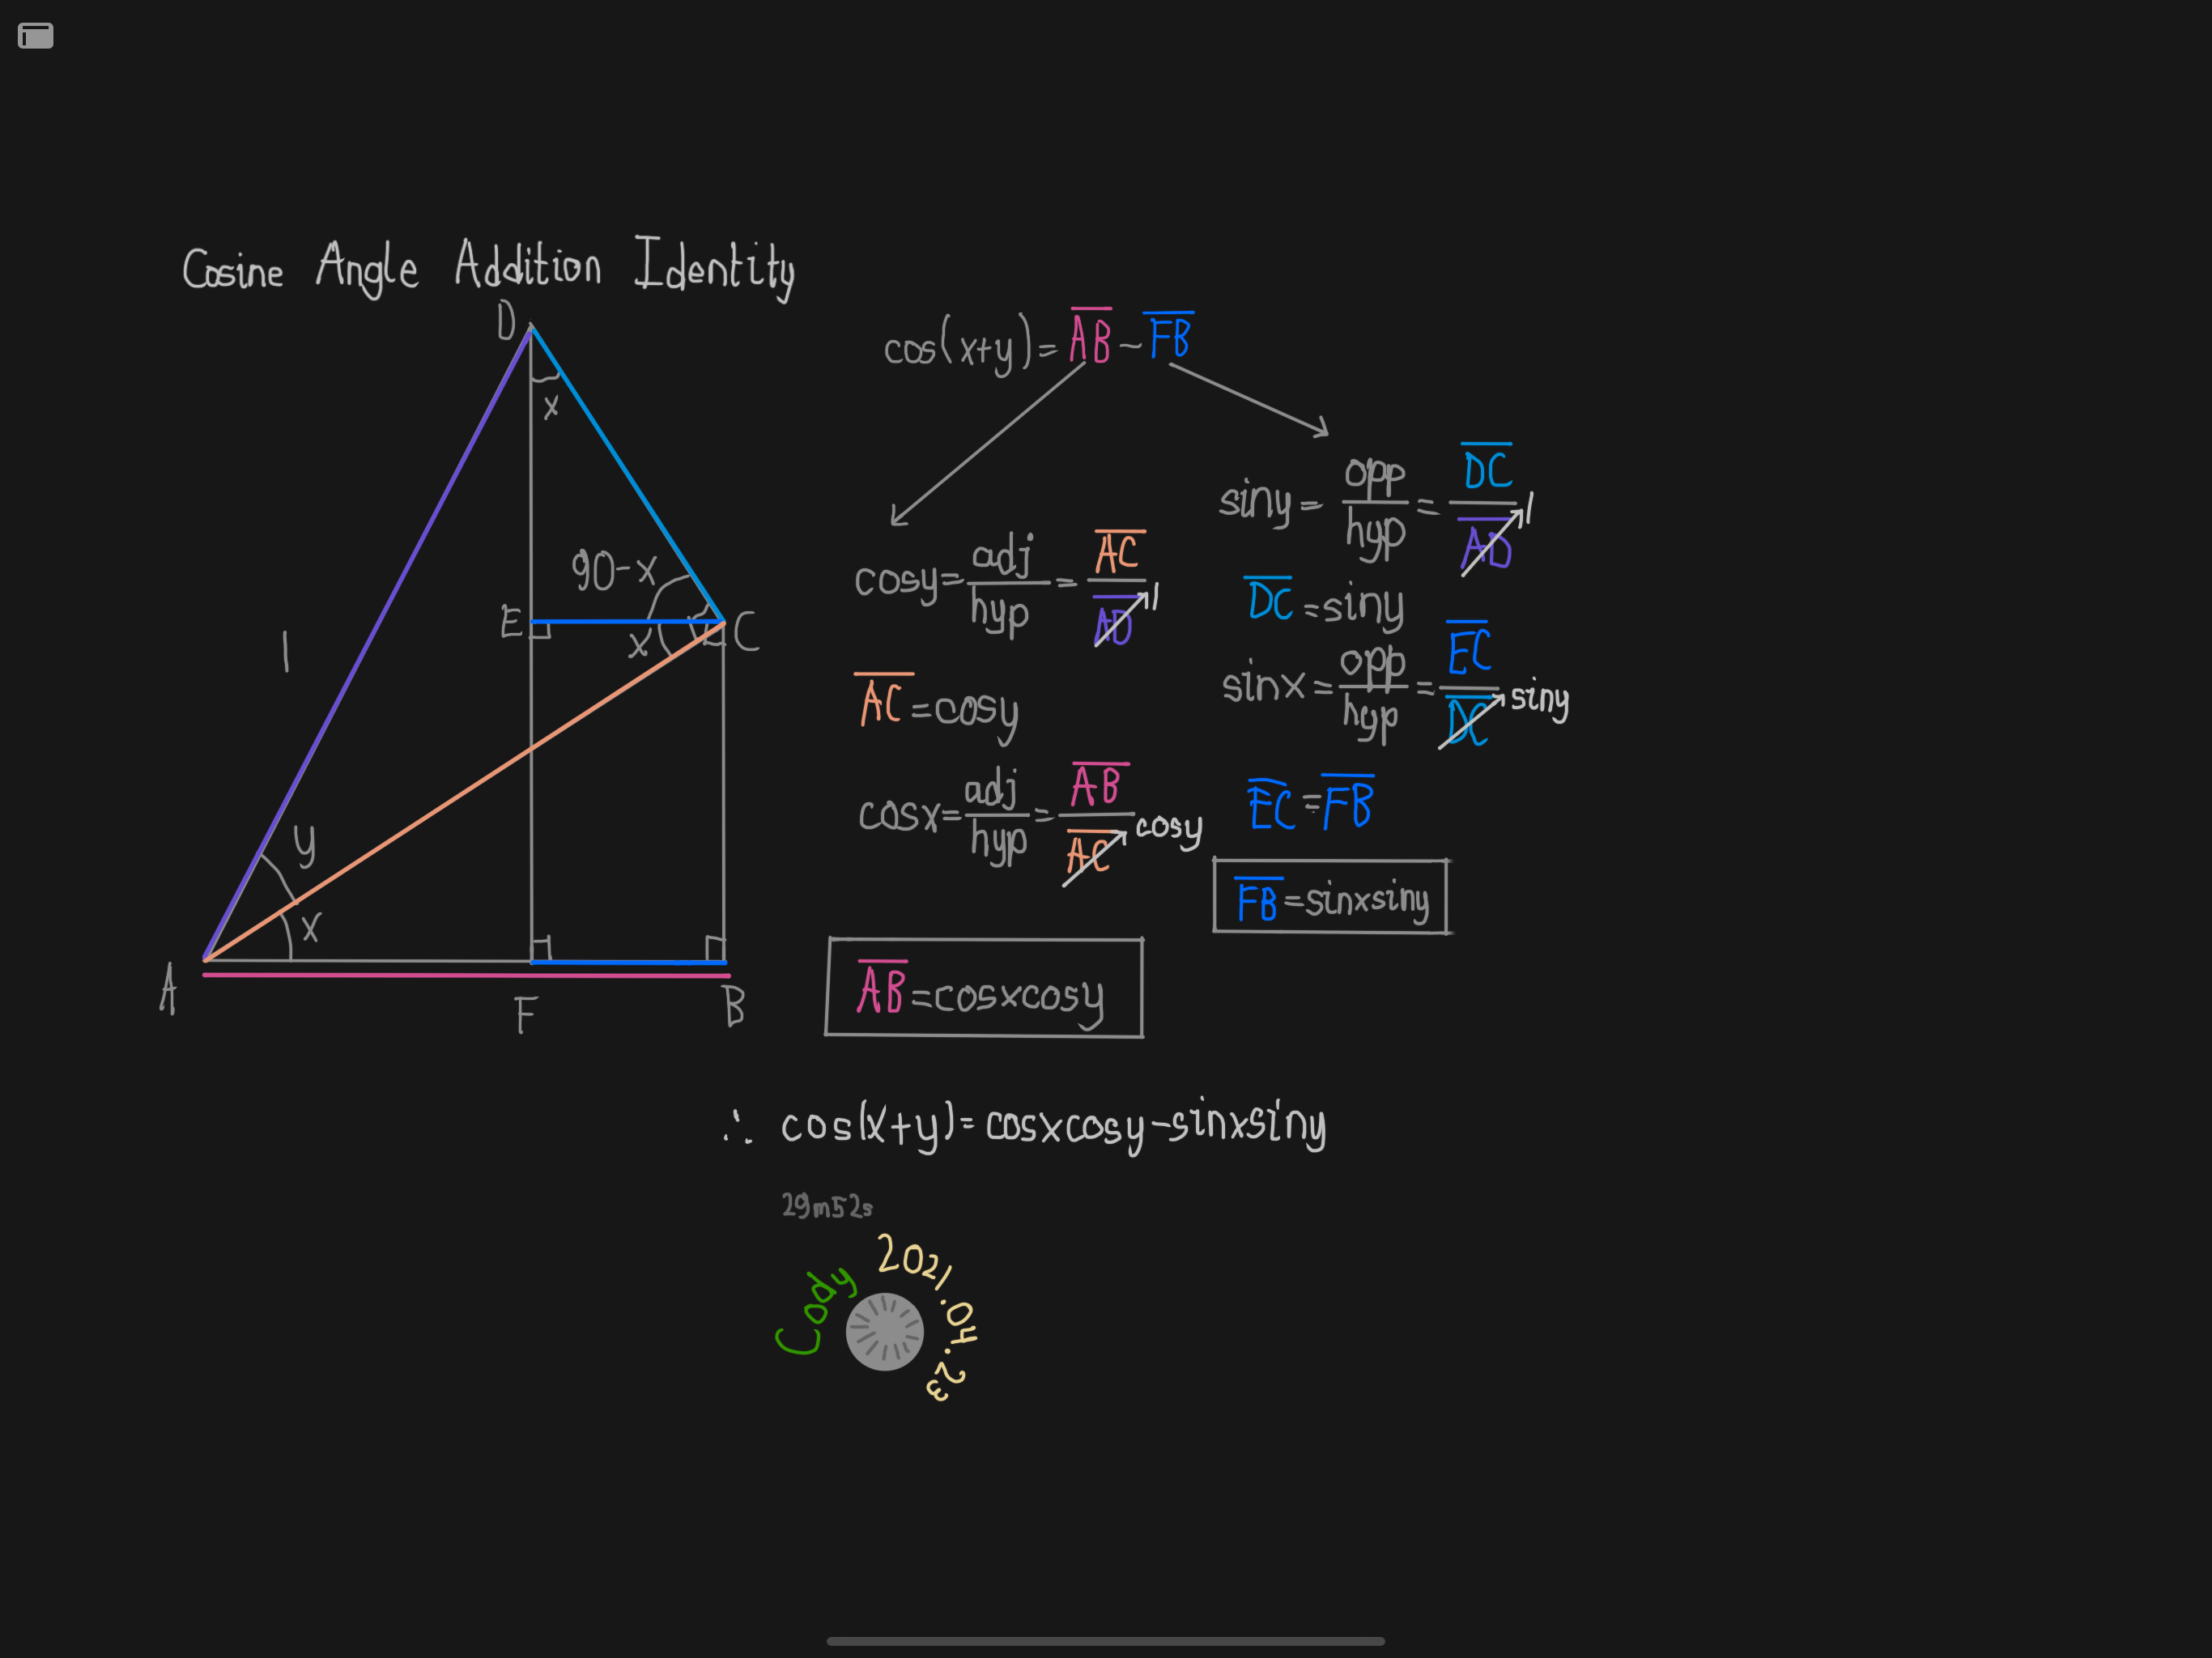 Cosine Angle Addition Identity
D
x
90-x
E
x
C
1
y
x
A
F
B
cos(x+y)=AB-FB
cosy=adj/hyp=AC/AD 1
AC=cosy
cosx=adj/hyp=AB/AC cosy
AB=cosxcosy
siny=opp/hyp=DC/AD 1
DC=siny
sinx=opp/hyp=EC/DC siny
EC=FB
FB=sinxsiny
∴ cos(x+y)=cosxcosy-sinxsiny
29m52s
Cody
2021.04.23